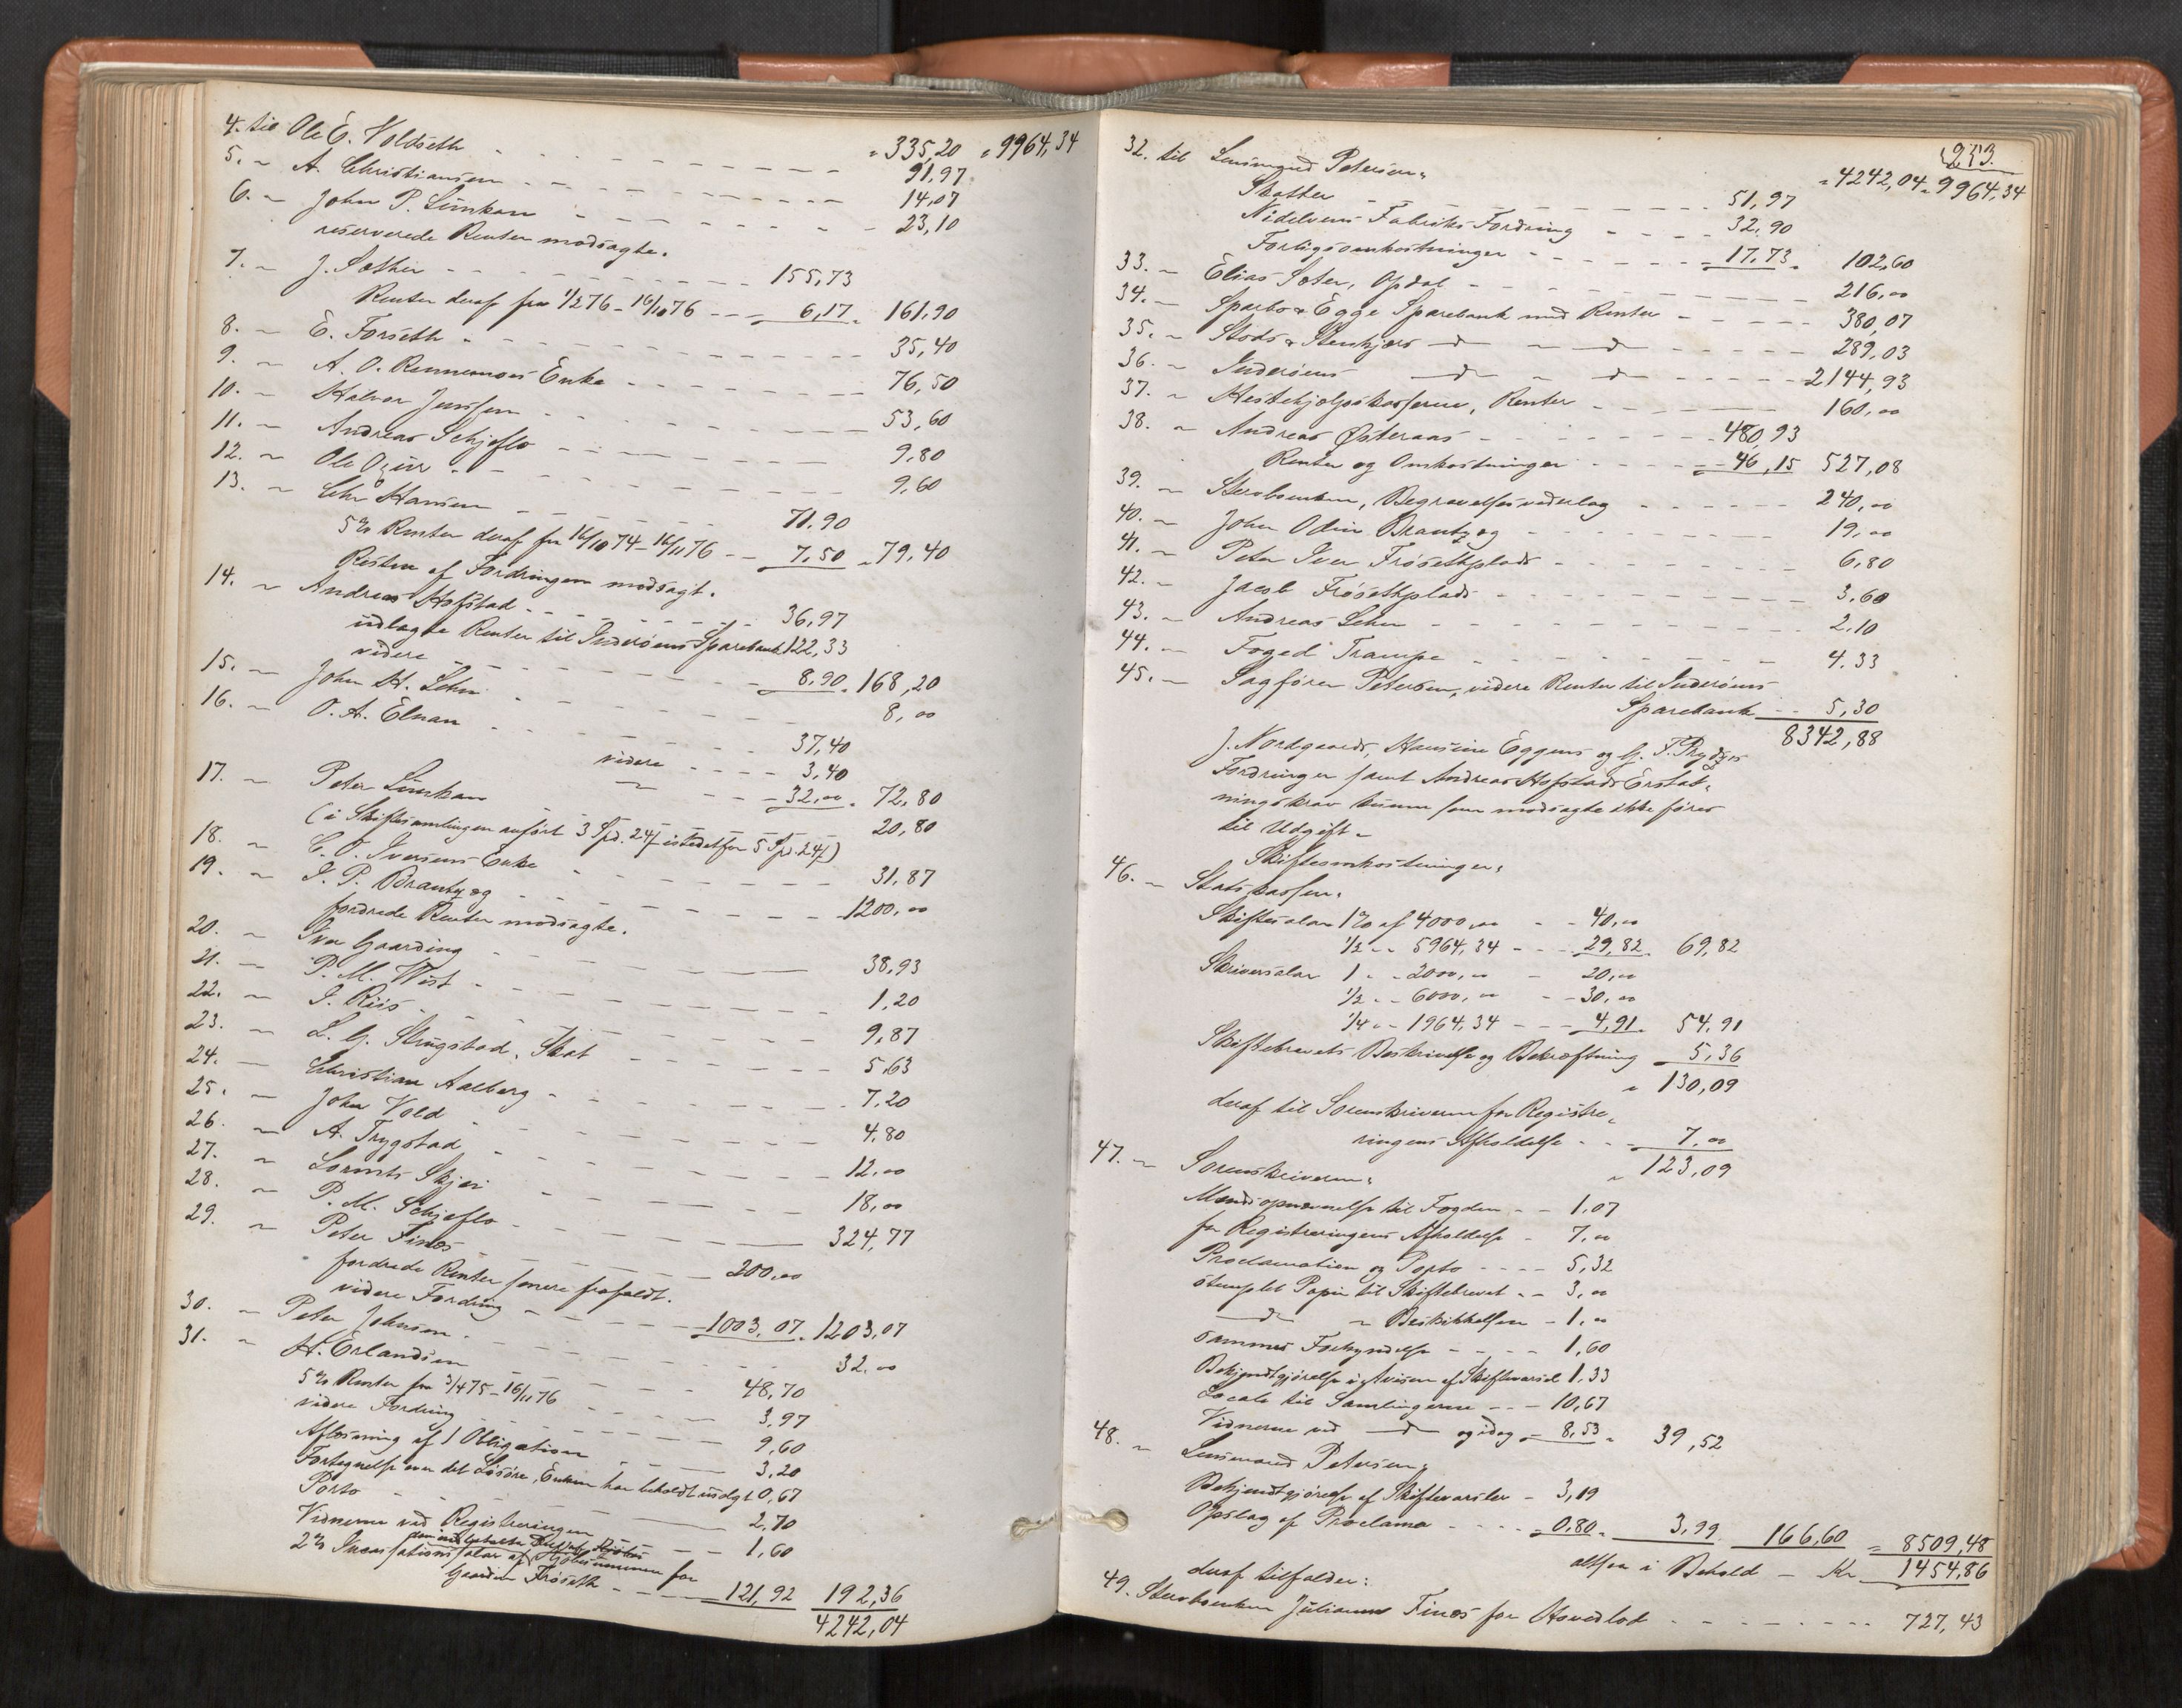 4. til Ole E. Voldseth - - - - " 335,20 " 9964,34
5. " A. Christiansen - - - - 91,97
6. " John P. Linskau - - - - 14,07
23,10
reserverede Renter modsagte.
7. " J. Sæther - - - - 155,73
Renter deraf fra 1/2 76 - 16/11 76 - - 6,17 " 161,90
8. " E. Forseth - - - - 35,40
9. " A. O. Rennemoes Enke - - - - 76,50
10. " Halvor Jenssen - - - - 53,60
11. " Andreas Schjeflo - - - - 9,80
12. " Ole - - - - 9,60
13. " Chr Hansen - - - - 71,90
5 % Renter deraf fra 16/10 74 - 16/11 76 - - 7,50 " 79,40
Resten af Fordringen modsagt.
14. " Andreas Hofstad - - - - 36,97
udlagte Renter til Inderøens Sparebank 122,33
videre - - - - 8,90 " 168,20
15. " John H. Lehn - - - - 8,00
16. " O. A. Elnan - - - - 37,40
videre - - - - 3,40
" - - - 32,00 " 72,80
17. " Peter Linskau - - - - 20,80
(i Skiftesamlingen anført 3 Spd. 24 β istedetfor 5 Spd. 24 β)
18. " C. O. Iversens Enke - - - - 31,87
19. " I. P. Brandtzæg - - - - 1200,00
fordrede Renter modsagte.
20. " Iver Gaarding - - - - 38,93
21. " P. M. Wist - - - - 1,20
22. " I. Riis - - - - 9,87
23. " L. G. Skrugstad, Skat - - - - 5,63
24. " Christian Aalberg - - - - 7,20
25. " John Vold - - - - 4,80
26. " A. Trygstad - - - - 12,00
27. " Lorents Skjei - - - - 18,00
28. " P. M. Schjeflo - - - - 324,77
29. " Peter Finæs - - - - 200,00
fordrede Renter senere frafaldt.
videre Fordring - - - - 1003,07 " 1203,07
30. " Peter Johnsen - - - - 32,00
31. " H. Erlandsen - - - - 48,70
5 % Renter fra 3/4 75 - 16/11 76 - - - - 3,97
videre Fordring - - - - 9,60
Aflæsning af 1 Obligation - - - - 3,20
Fortegnelse over det Løsøre, Enken har beholdt udlagt 0,67
Porto - - - - 2,70
Vidnerne ved Registreringen - - - - 1,60
2 % Incassationssalær af Kjøbesummen for
Gaarden Frøseth - - - - 121,92 192,36
4242,04
253.
32. til Lensmand Petersen: " 4242,04 " 9964,34
Skatter - - - - 51,97
Nidelvens Fabriks Fordring - - - - 32,90
Forligsomkostninger - - - - 17,73 " 102,60
33. " Elias Sæter, Opdal - - - - 216,00
34. " Sparbo & Egge Sparebank med Renter - - - - 380,07
35. " Stods & Stenkjærs do " do - - - - 289,03
36. " Inderøens do " do - - - - 2144,93
37. " Hestehjælpskasserne, Renter - - - - 160,00
38. " Andreas Østeraas - - - - 480,93
Renter og Omkostninger - - - - 46,15 527,08
39. " Stervboenken, Begravelsesvederlag - - - - 240,00
40. " John Odin Brandtzæg - - - - 19,00
41. " Peter Iver Frøsethplads - - - - 6,80
42. " Jacob Frøsethplads - - - - 3,60
43. " Andreas Lehn - - - - 2,10
44. " Foged Trampe - - - - 4,33
45. " Sagfører Petersen, videre Renter til Inderøens
Sparebank - - 5,30
8342,88
J. Nordgaards, Hansine Eggens og G. F. Prydz's
Fordringer samt Andreas Hofstads Erstat-
ningskrav som modsagte ikke føres
til Udgift.
Skifteomkostninger:
46. " Statskassen:
Skiftesalær 1 % af 4000,00 - - 40,00
1/2 " " 5964,34 - - - 29,82 " 69,82
Skriversalær 1 " " 2000,00 - 20,00
1/2 " " 6000,00 - - 30,00
1/4 " " 1964,34 - - - 4,91 " 54,91
Skiftebrevets Beskrivelse og Bekræftning 5,36
" 130,09
deraf til Sorenskriveren for Registre-
ringens Afholdelse - - - 7,00
" 123,09
47. " Sorenskriveren:
Mændsopnævnelse til Fogden - - 1,07
for Registreringens Afholdelse - 7,00
Proclamation og Porto - - - - 5,32
stemplet Papir til Skiftebrevet - - 3,00
do " Beskikkelsen - 1,00
sammes Forkyndelse - - - - 1,60
Bekjendtgjørelse i Avisen af Skiftevarsel 1,33
Locale til Samlingerne - - - 10,67
Vidnerne ved do og idag - 8,53 " 39,52
48. " Lensmand Petersen:
Bekjendtgjørelse af Skiftevarsler - 3,19
Opslag af Proclama - - - - 0,80 " 3,99 166,60 = 8509,48
altsaa i Behold - Kr 1454,86
deraf tilfalder:
49. Stervboenken Julianna Finæs for Hovedlod - - - - 727,43